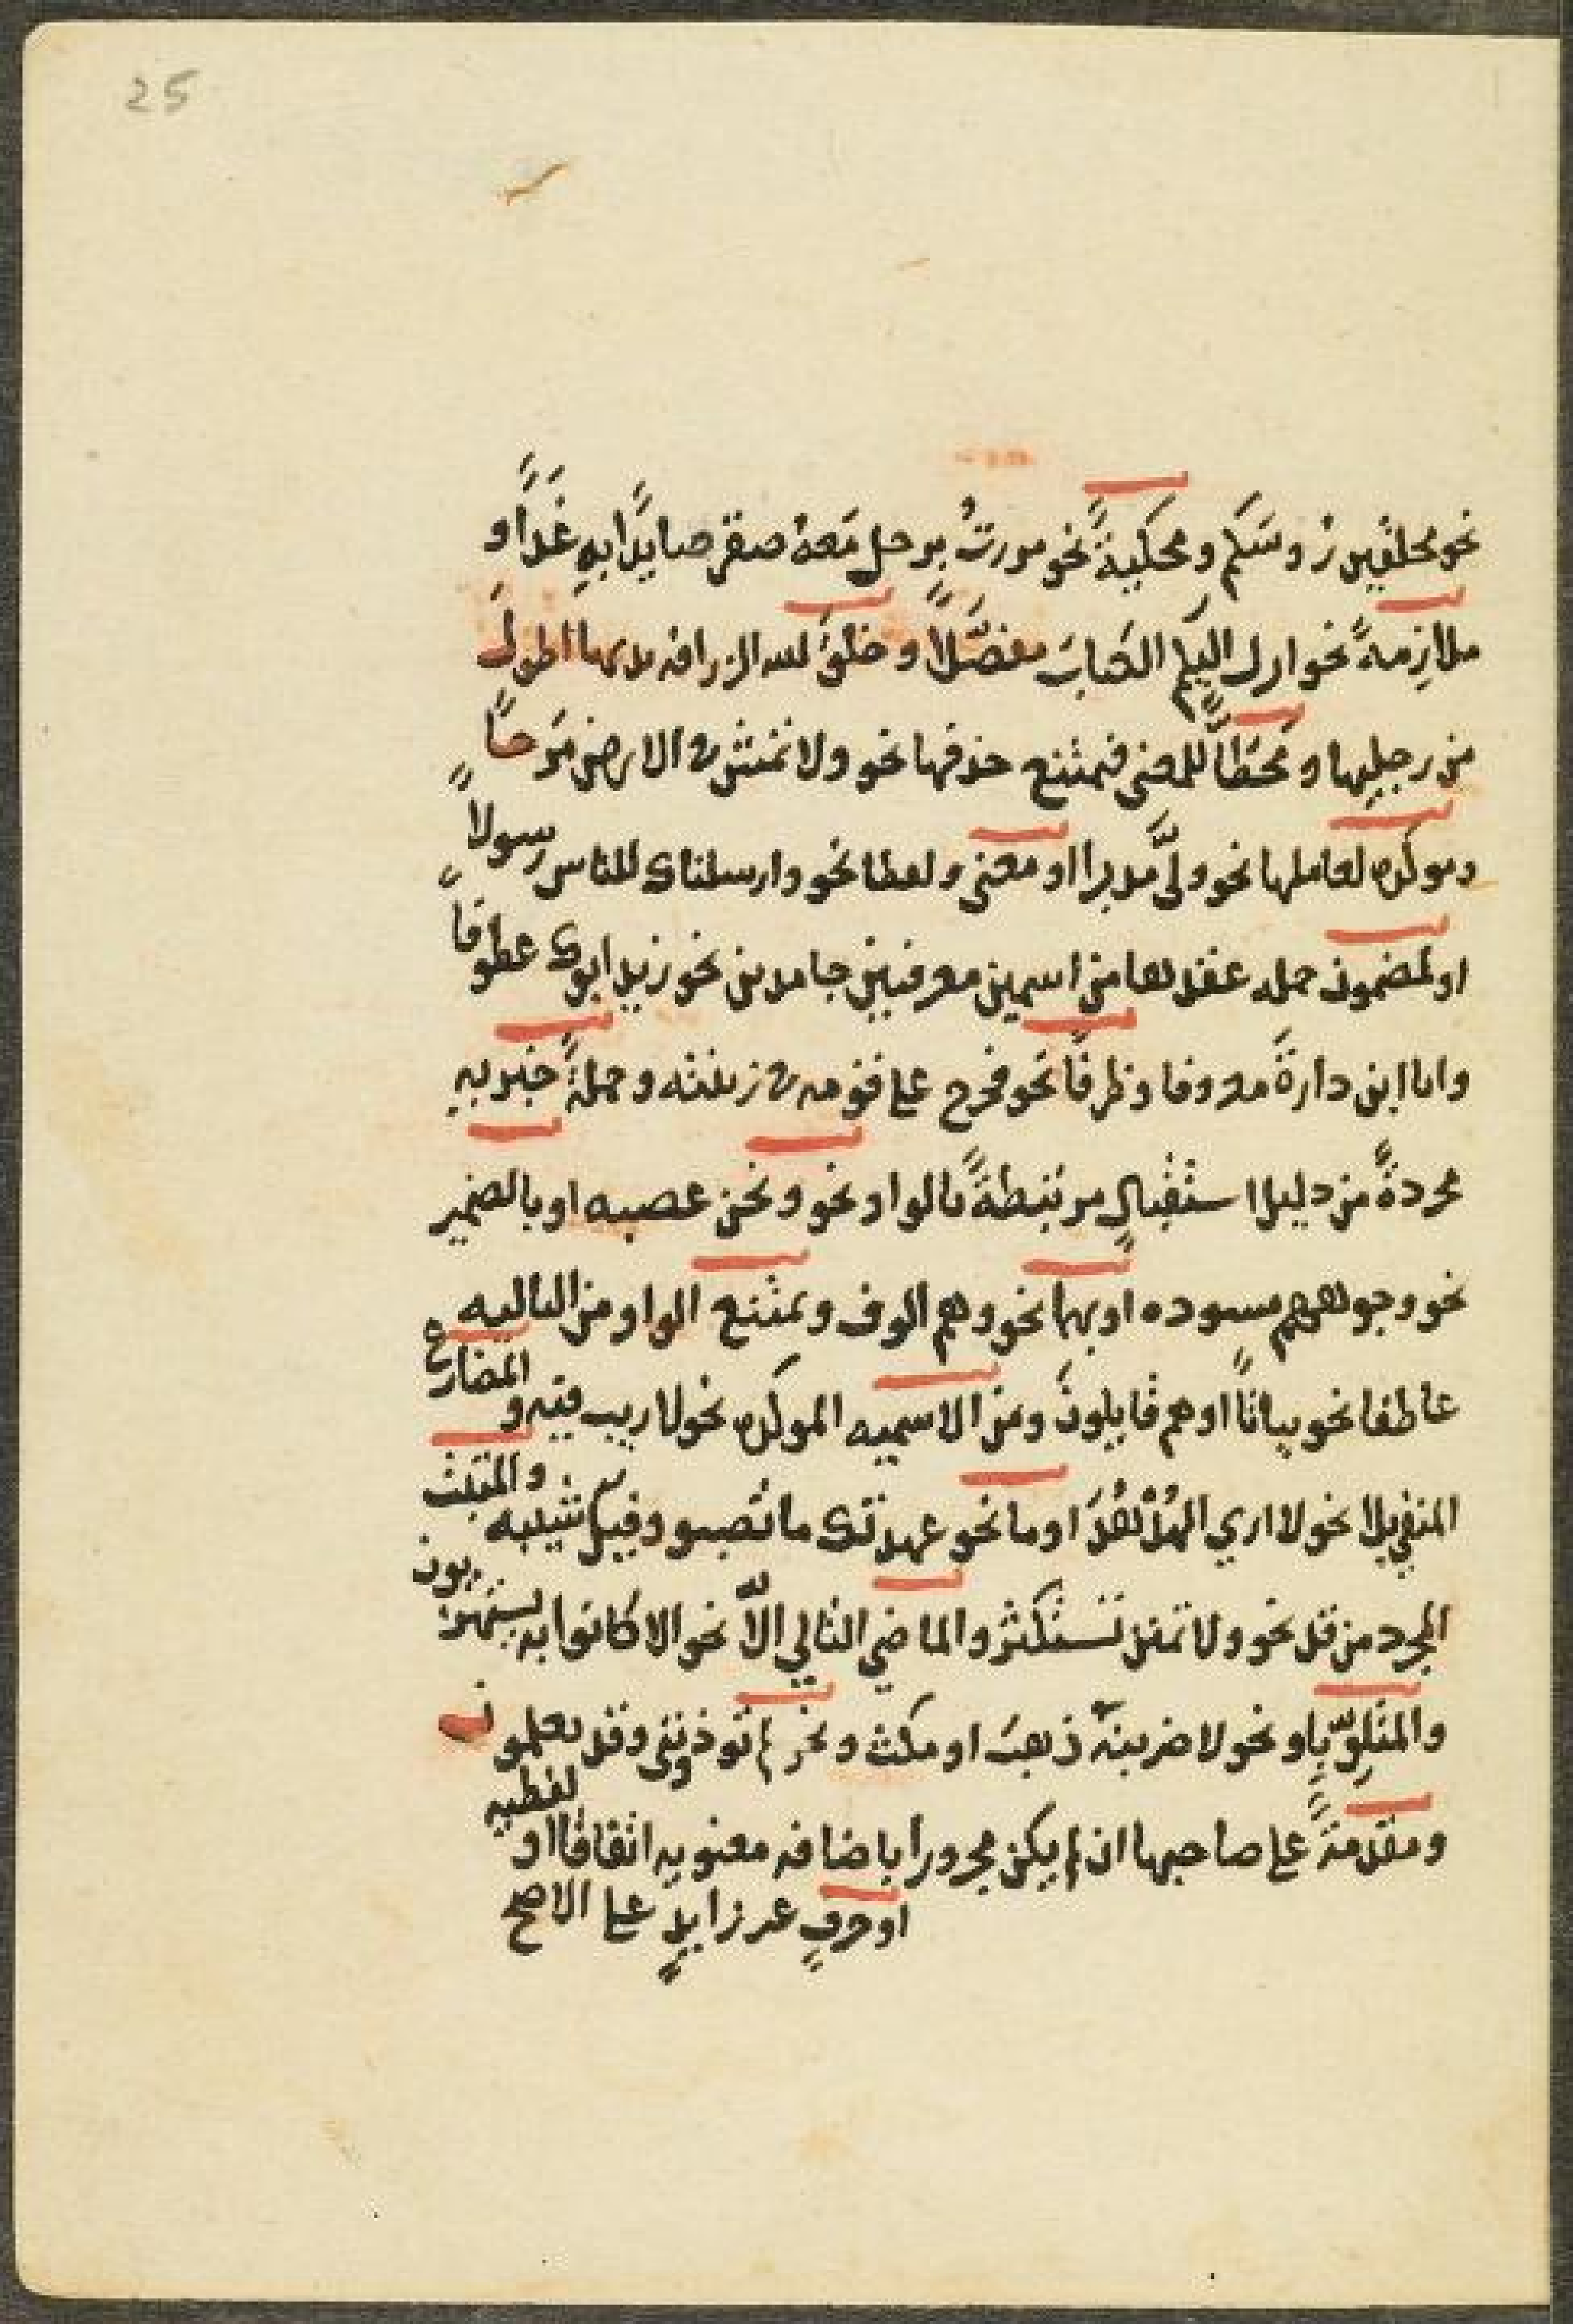 25
نحو محلقين رؤوسكم ومحكيةً نحو مررتُ برجل مَعهُ صقر صايدًا به غَدًا او
ملازِمةً نحو انزل اليكم الكتابَ مفصَّلًا وخلقَ الله الزرافه يديها اطولَ
من رجليها ومُحَطًّا للمعنى فيمتنع حذفها نحو ولا تمش في الارض مَرَحًا
وموكده لعاملها نحو ولَّى مدبرا او معنى ولفظا نحو وارسلناك للناس رسولًا
او لمضمون جمله عقدها من اسمين معرفتين جامدين نحو زيد ابوك عطوفًا
وانا ابن دارةَ معروفا وظرفًا نحو فخرج على قومه في زينته وجملةً خبريهٍ
مجردةً من دليل استقبالٍ مرتبطةً بالواو نحو ونحن عصبه او بالضمير
نحو وجوههم مسوده او بهما نحو وهم الوف ويمتنع الواو من التاليه
عاطفا نحو بياتًا او هم قايلونَ ومن الاسميه الموكده نحو لا ريب فيه و المضارع
المنفي بلا نحو لا اري الهُدْهُدَ او ما نحو عهدتك ما تصبو وفيكَ شبيبه والمثبت
المجرد من قد نحو ولا تمنن تستكثر والماضي التالي الّا نحو الا كانوا به يستهزيون
والمتلوّ باو نحو لاضربنهّ ذهبَ او مكث ونحو لم توذونني وقد تعلمون
ومقدمةً على صاحبها ان لم يكن مجرورا باضافه معنويه اتفاقًا او لفظيه
او حرفٍ غير زايدٍ على الاصح